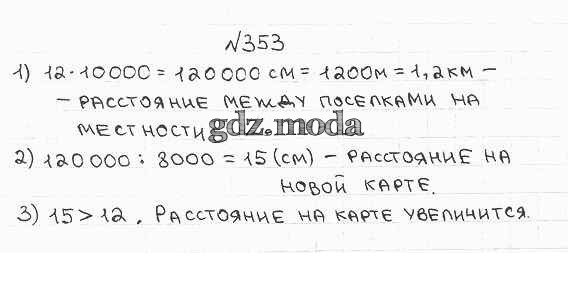 №353
1) 12·10000 = 120000 см = 1200м = 1,2км –
– расстояние между поселками на
местности
gdz.moda
2) 120000 : 8000 = 15 (см) – расстояние на
новой карте.
3) 15 > 12, расстояние на карте увеличится.